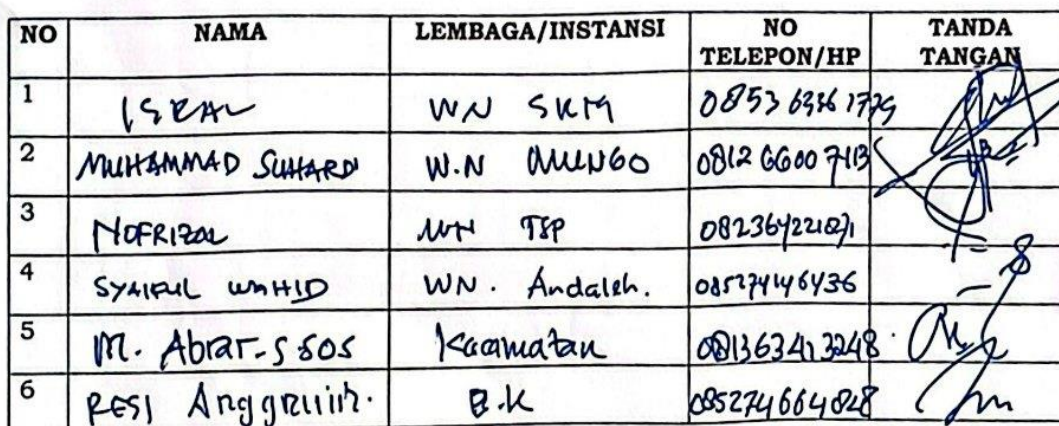 NO NAMA LEMBAGA/INSTANSI NO TELEPON/HP TANDA TANGAN
1 ISRAL WN SKM
2 MUHAMMAD SUHARDI W.N MUNGO 0812 6600 7113
3 NOFRIZAL WN TSP
4 SYAIFUL WAHID WN. Andaleh. 085274146436
5 M. Abrar. S SOS Kecamatan 081363413248
6 RESI Anggraini. B.K 085274664828